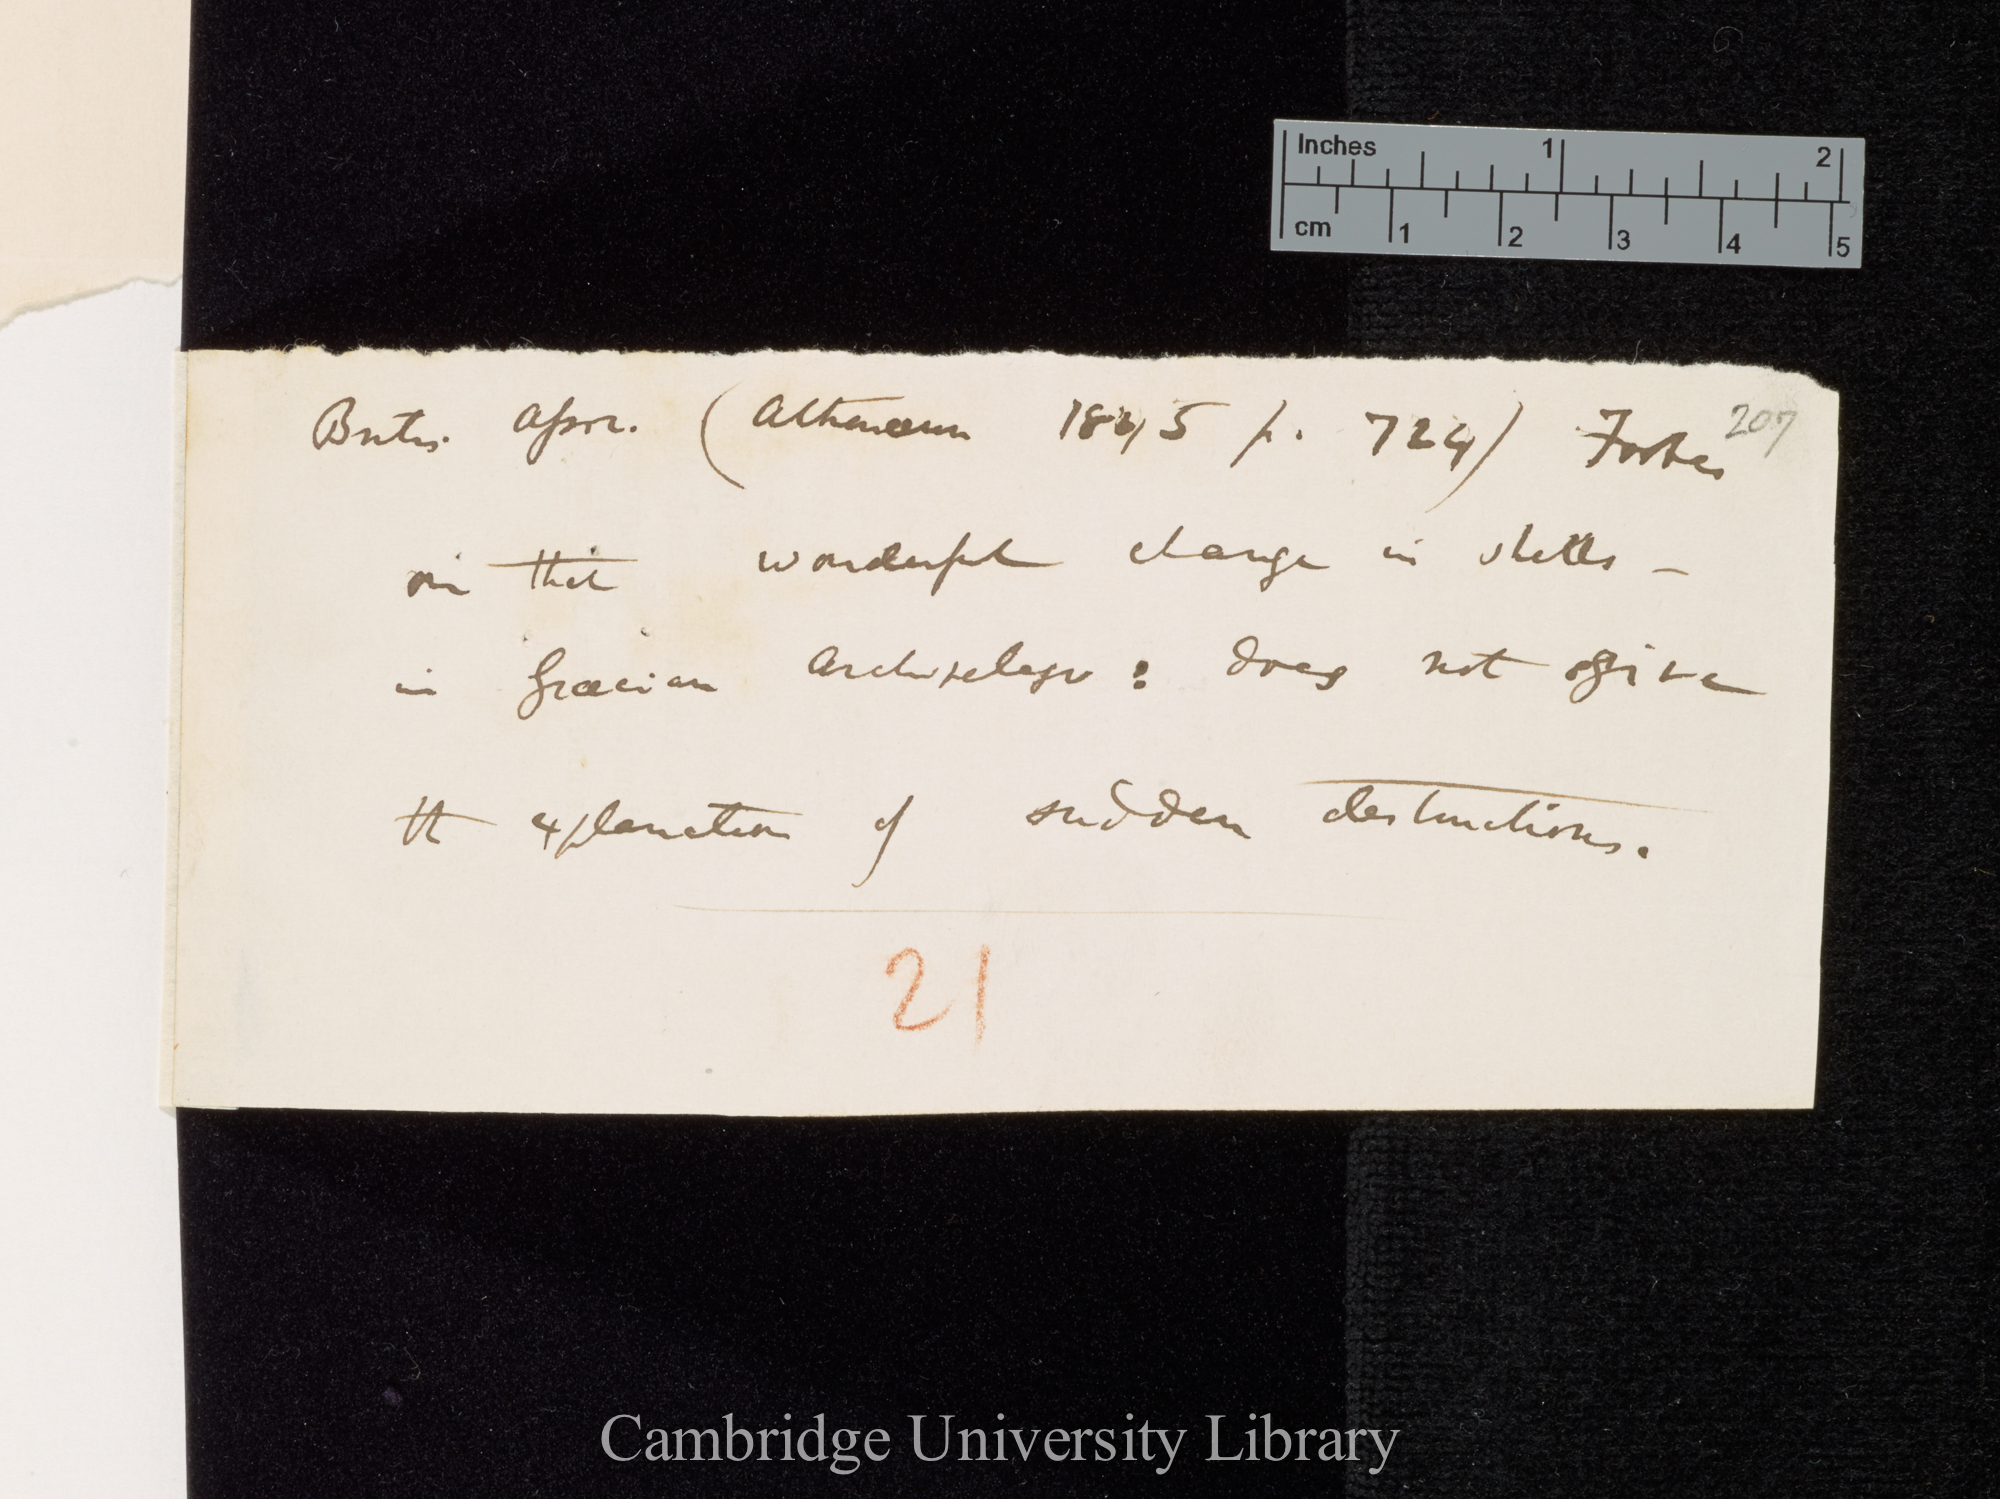 Inches 1 2
cm 1 2 3 4 5
207
Brit. Assoc. (Athenæum 1845 p. 724) Forbes
on that wonderful change in shells –
in Græcian Archipelago: does not give
the explanation of sudden destructions.
21
Cambridge University Library